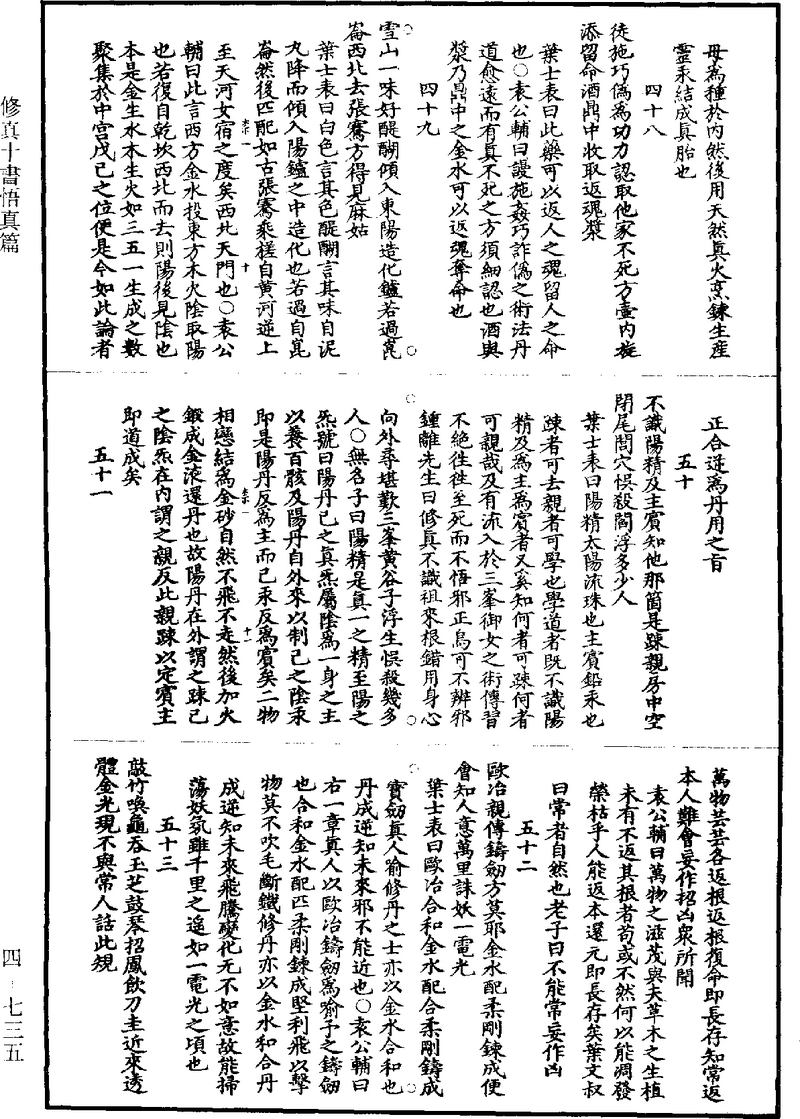 母爲種於內然後用天然真火烹鍊生産
靈汞結成真胎也
四十八
徒施巧僞爲功力認取他家不死方壺內旋
添留命酒鼎中收取返魂漿
葉士表曰此藥可以返人之魂留人之命
也○袁公輔曰謾施姦巧詐僞之術法丹
道愈遠而有真不死之方須細認也酒與
漿乃鼎中之金水可以返魂奪命也
四十九
雪山一味好醍醐傾入東陽造化鑪若過崑
崙西北去張騫方得見麻姑
葉士表曰白色言其色醍醐言其味自泥
九降而傾入陽鑪之中造化也若過自崑
崙然後匹配如古張騫乘槎自黄河逆上
至天河女宿之度矣西北天門也○袁公
輔曰此言西方金水投東方木火陰取陽
也若復自乾坎西北而去則陽後見陰也
本是金生水木生火如三五一生成之數
聚集於中宮戊己之位便是今如此論者
正合逆爲丹用之旨
五十
不識陽精及主賓知他那箇是踈親房中空
閉尾閭穴悮殺閻浮多少人
葉士表曰陽精太陽流珠也主賓鉛汞也
踈者可去親者可學也學道者既不識陽
精及爲主爲賓者又奚知何者可踈何者
可親哉及有流入於三峯御女之術傳習
不絶徃徃至死而不悟邪正烏可不辨邪
鍾離先生曰修真不識祖來根錯用身心
向外尋堪歎三峯黄谷子浮生悮殺幾多
人○無名子曰陽精是真一之精至陽之
炁號曰陽丹己之真炁屬陰爲一身之主
以養百骸及陽丹自外來以制己之陰汞
即是陽丹反爲主而己汞反爲賓矣二物
相戀結爲金砂自然不飛不走然後加火
鍜成金液還丹也故陽丹在外謂之踈己
之陰炁在內謂之親反此親踈以定賓主
即道成矣
五十一
萬物芸芸各返根返根復命即長存知常返
本人難會妄作招凶衆所聞
袁公輔曰萬物之滋茂與夫草木之生植
未有不返其根者苟或不然何以能凋發
榮枯乎人能返本還元即長存矣葉文叔
曰常者自然也老子曰不能常妄作凶
五十二
歐冶親傳鑄劒方莫耶金水配柔剛鍊成便
會知人意萬里誅妖一電光
葉士表曰歐冶合和金水配合柔剛鑄成
寶劒真人喻修丹之士亦以金水合和也
丹成逆知未來邪不能近也○袁公輔曰
右一章真人以歐冶鑄劒爲喻予之鑄劒
也合和金水配匹柔剛鍊成堅利飛以擊
物莫不吹毛斷鐵修丹亦以金水和合丹
成逆知未來飛騰變化无不如意故能掃
蕩妖氛雖千里之遥如一電光之頃也
五十三
敲竹喚龜吞玉芝鼓琴招鳳飲刀圭近來透
體金光現不與常人話此規
修真十書悟真篇
四-七三五